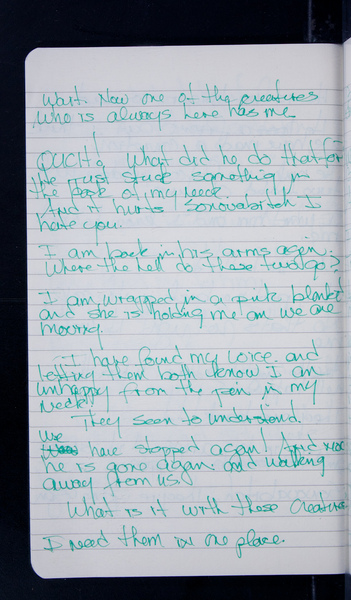 Wait. Now one of the creatures
who is always here has me
OUCH! What did he do that for
He just stuck something in
the back of my neck.
And it hurts sonovabitch I
hate you.
I am back in his arms again.
Where the hell do these two go?
I am wrapped in a pink blanket
and she is holding me and we are
moving.
I have found my voice and
letting them both know I am
unhappy from the pain in my
neck!
They seem to understand.
We
have stopped again! And
he is gone again. and walking
away from us
What is it with these creatures
I need them in one place.